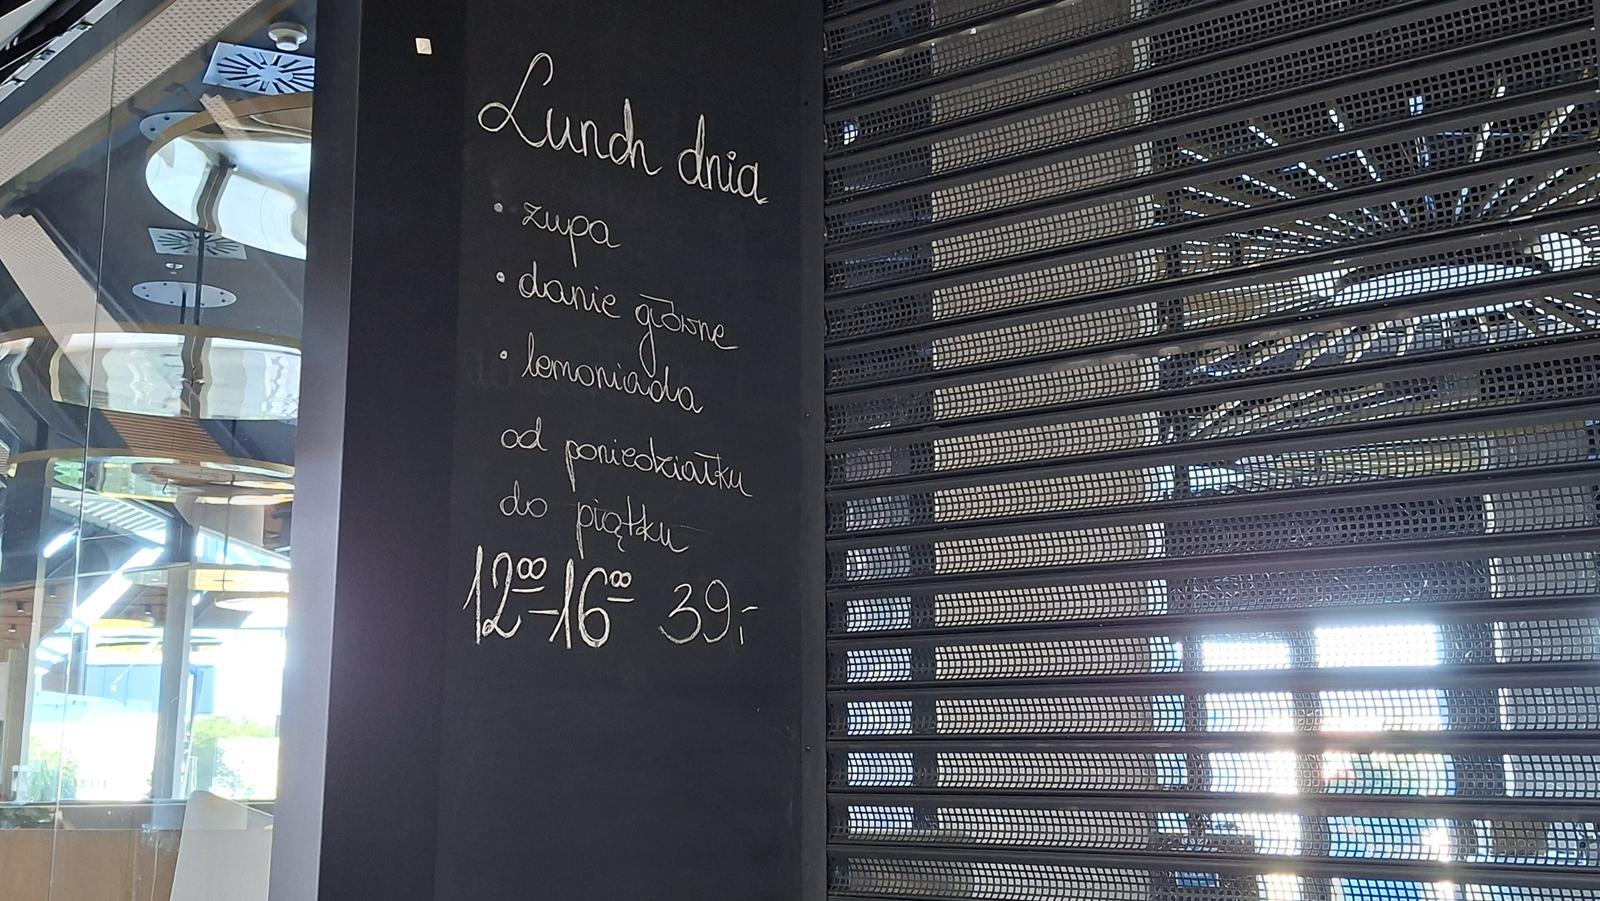 Lunch dnia
• zupa
• danie główne
• lemoniada
od poniedziałku
do piątku
12⁰⁰-16⁰⁰ 39,-